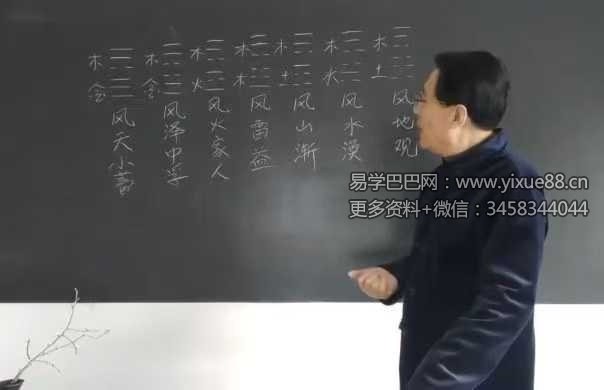 木 木 木 木 木 木 木
金 金 火 木 土 水 土
风天小蓄
风泽中孚
风火家人
风雷益
风山渐
风水涣
风地观
易学巴巴网：www.yixue88.cn
更多资料+微信：3458344044